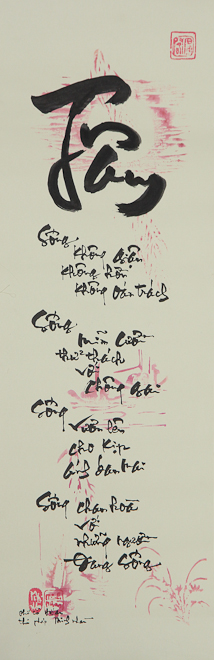 Tâm
Sống
không giận
không hờn
không oán trách
Sống
mỉm cười
thử thách
với
chông gai
Sống
vươn lên
cho kịp
ánh ban mai
Sống chan hoà
với
những người
đang sống